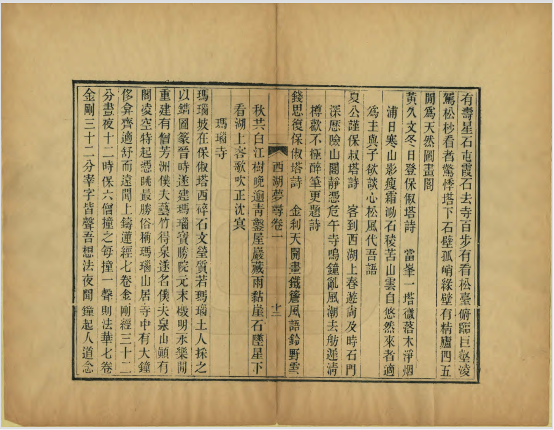 有壽星石屯霞石去寺百步有看松臺俯臨巨壑凌
駕松杪看者驚悸塔下石壁孤峭緣壁有精廬四五
間為天然圖畫閣
黃久文冬日登保俶塔詩　當峯一塔微落木淨烟
浦日寒山影瘦霜泐石稜苦山雲自悠然來者適
為主與子欲談心松風代吾語
夏公謹保叔塔詩　客到西湖上春遊尚及時石門
深歷險山閣靜憑危午寺鳴鐘亂風潮去舫遲清
樽歡不極醉筆更題詩
錢思復保俶塔詩　金刹天開畫鐵簷風語鈴野雲
西湖夢尋卷一
十二
秋共白江樹晚逾青鑿屋巖藏雨黏崖石墜星下
看湖上客歌吹正沈冥
瑪瑙寺
瑪瑙坡在保俶塔西碎石文瑩質若瑪瑙土人採之
以鐫圖篆晉時遂建瑪瑙寶勝院元末燬明永樂間
重建有僧芳洲僕夫藝竹得泉遂名僕夫泉山巔有
閣凌空特起憑眺最勝俗稱瑪瑙山居寺中有大鐘
侈弇齊適舒而遠聞上鑄蓮經七卷金剛經三十二
分晝夜十二時保六僧撞之每撞一聲則法華七卷
金剛三十二分字字皆聲吾想法夜聞鐘起人道念